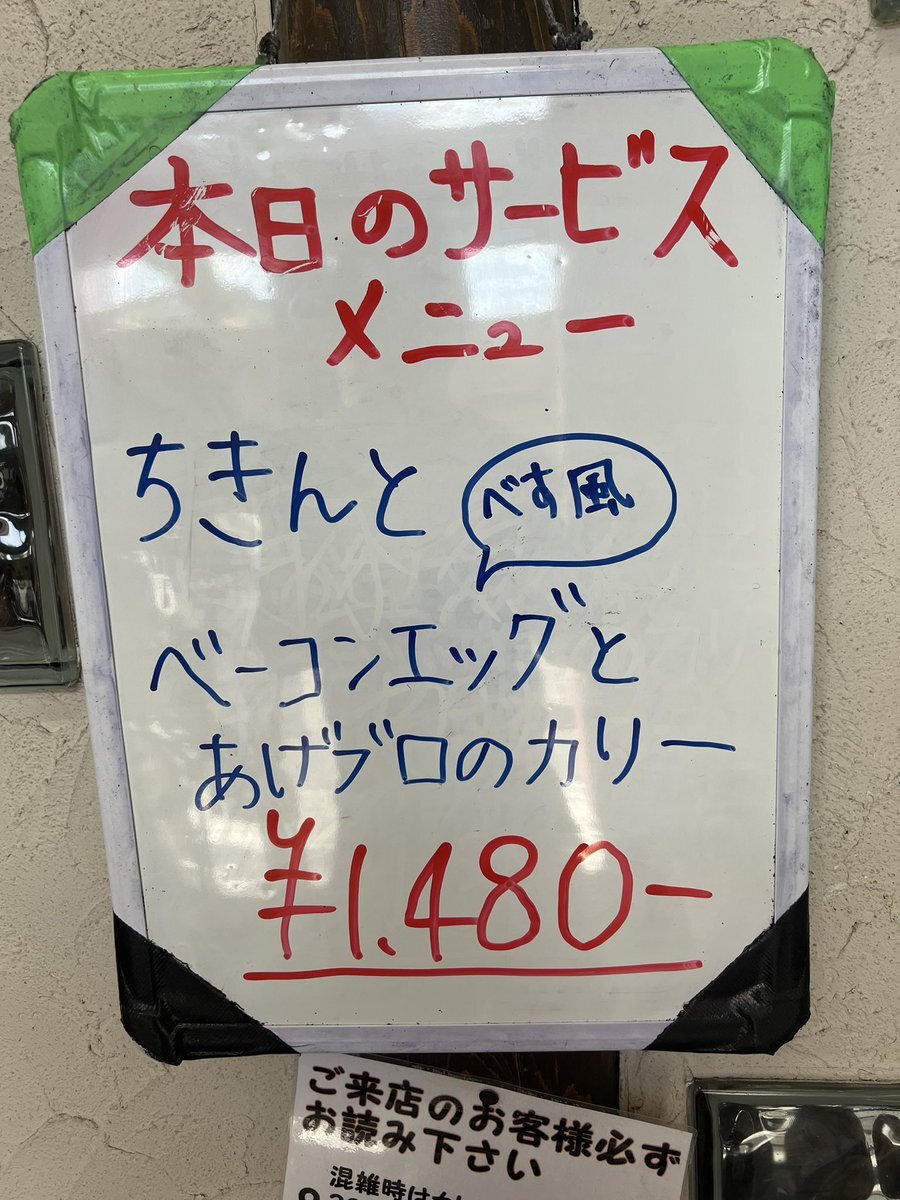 本日のサービス
メニュー
ちきんと
べす風
ベーコンエッグと
あげブロのカリー
¥1.480-
ご来店のお客様必ず
お読み下さい
混雑時は